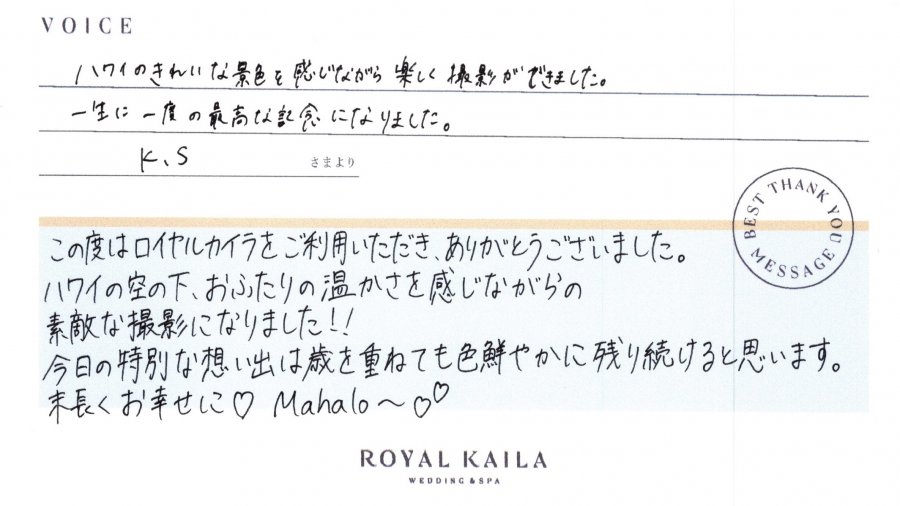 VOICE
ハワイのきれいな景色を感じながら 楽しく 撮影ができました。
一生に一度の最高な記念になりました。
K、S さまより
BEST THANK YOU MESSAGE
この度はロイヤルカイラをご利用いただき、ありがとうございました。
ハワイの空の下、おふたりの温かさを感じながらの
素敵な撮影になりました!!
今日の特別な想い出は歳を重ねても色鮮やかに残り続けると思います。
末長くお幸せに♡ Mahalo～♡♡
ROYAL KAILA
WEDDING & SPA